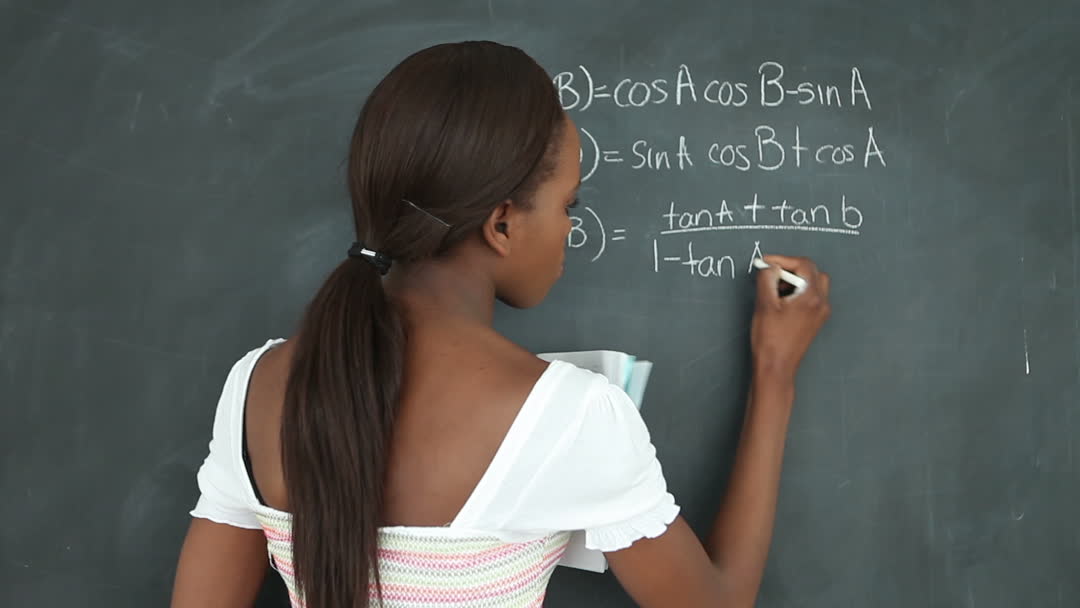 B)=cosA cos B-sin A
)=sinA cosB+cosA
B)= tanA + tan b
1-tan A